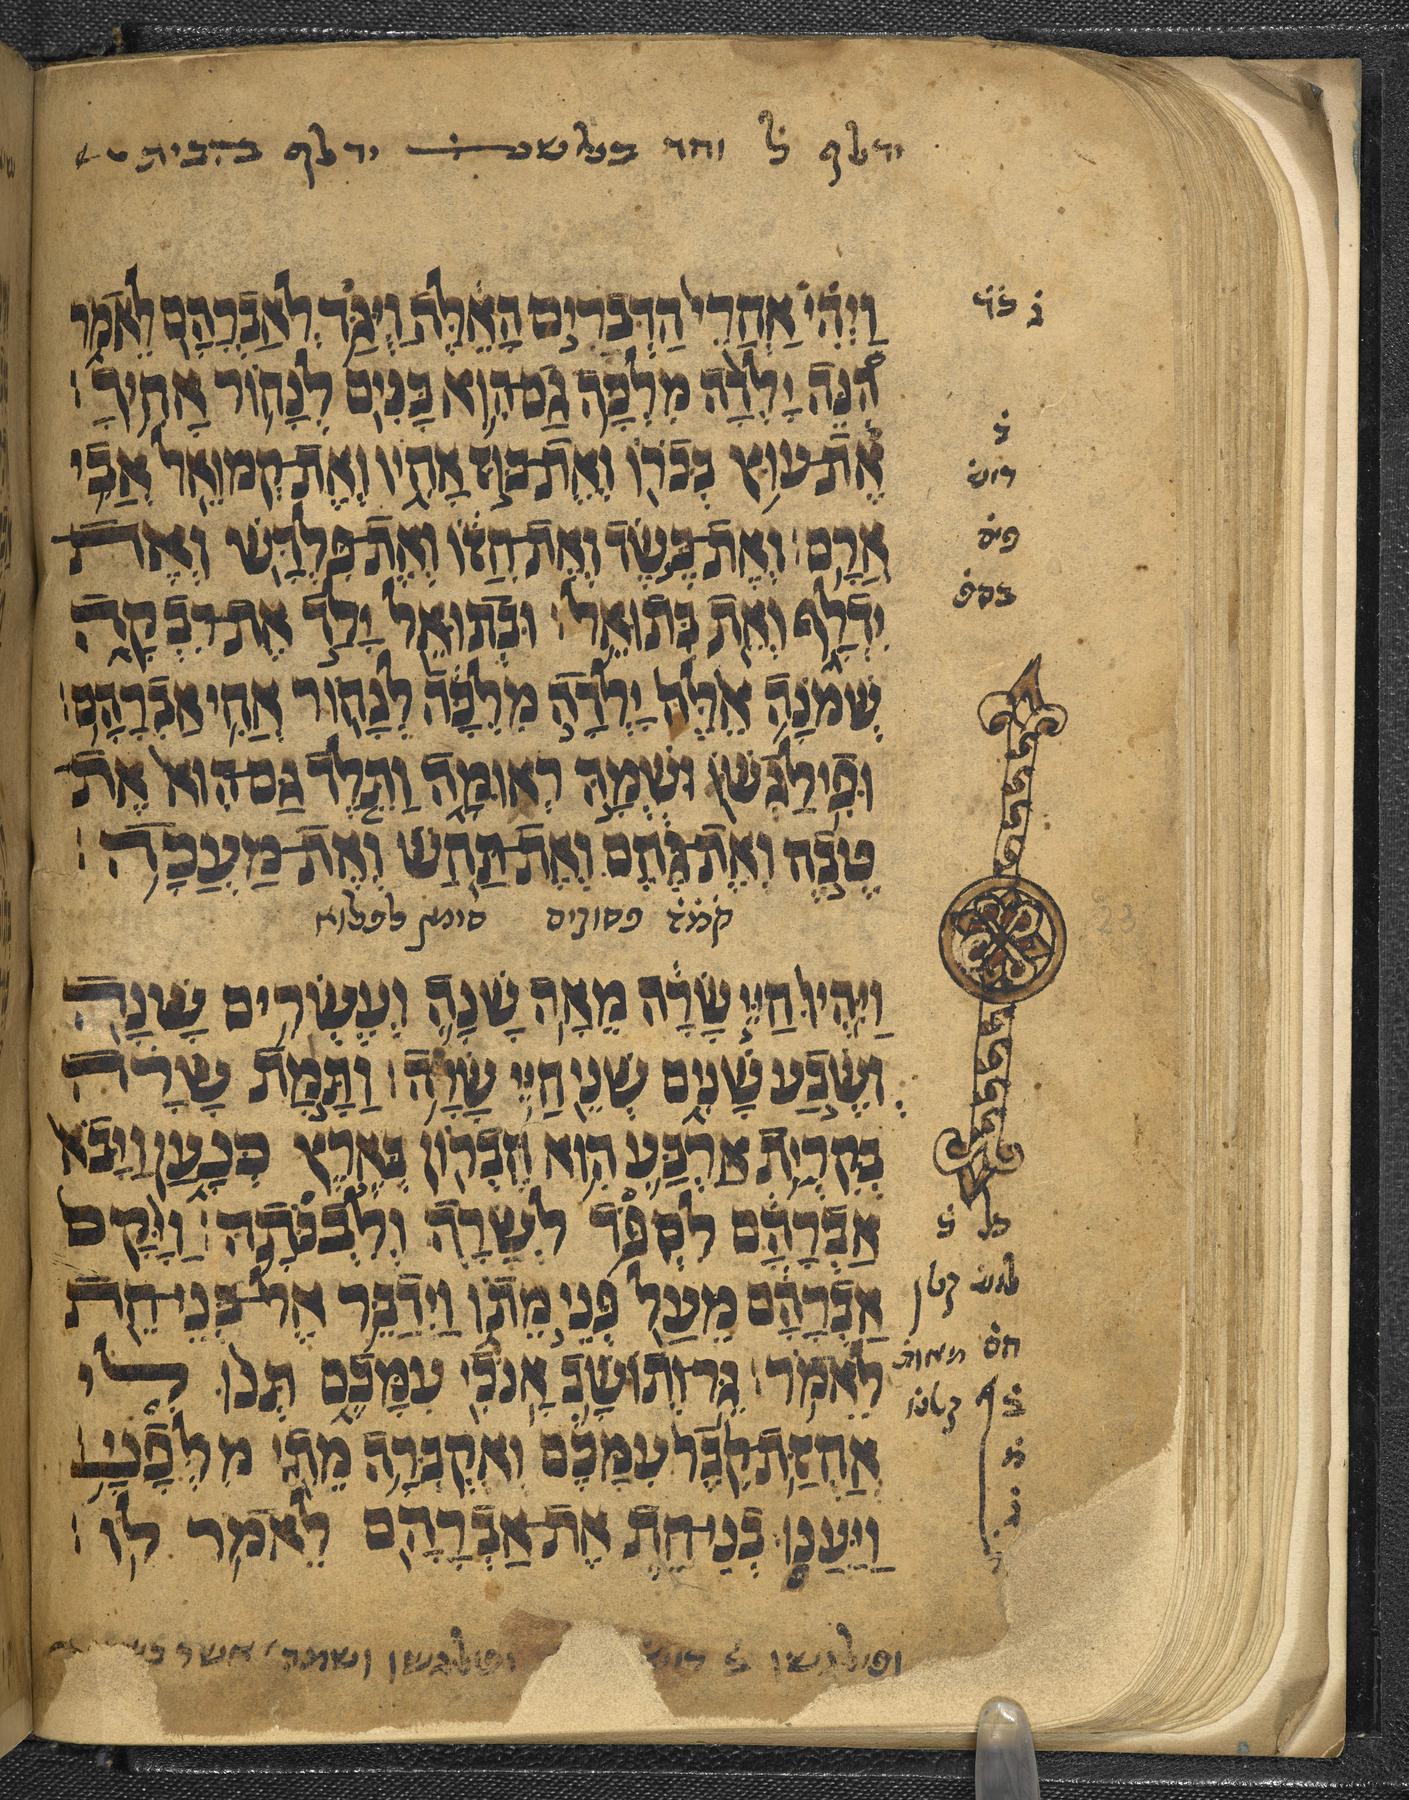 ידלף ל וחד בליש ידלף הבית
וַיְהִי אַחֲרֵי הַדְּבָרִים הָאֵלֶּה וַיֻּגַּד לְאַבְרָהָם לֵאמֹר
הִנֵּה יָלְדָה מִלְכָּה גַם־הִוא בָּנִים לְנָחוֹר אָחִיךָ׃
אֶת־עוּץ בְּכֹרוֹ וְאֶת־בּוּז אָחִיו וְאֶת־קְמוּאֵל אֲבִי
אֲרָם׃ וְאֶת־כֶּשֶׂד וְאֶת־חֲזוֹ וְאֶת־פִּלְדָּשׁ וְאֶת־
יִדְלָף וְאֵת בְּתוּאֵל׃ וּבְתוּאֵל יָלַד אֶת־רִבְקָה
שְׁמֹנָה אֵלֶּה יָלְדָה מִלְכָּה לְנָחוֹר אֲחִי אַבְרָהָם׃
וּפִילַגְשׁוֹ וּשְׁמָהּ רְאוּמָה וַתֵּלֶד גַּם־הִוא אֶת־
טֶבַח וְאֶת־גַּחַם וְאֶת־תַּחַשׁ וְאֶת־מַעֲכָה׃
קֹמֹזֹ פסוקים סימן
וַיִּהְיוּ חַיֵּי שָׂרָה מֵאָה שָׁנָה וְעֶשְׂרִים שָׁנָה
וְשֶׁבַע שָׁנִים שְׁנֵי חַיֵּי שָׂרָה׃ וַתָּמָת שָׂרָה
בְּקִרְיַת אַרְבַּע הִוא חֶבְרוֹן בְּאֶרֶץ כְּנָעַן וַיָּבֹא
אַבְרָהָם לִסְפֹּד לְשָׂרָה וְלִבְכֹּתָהּ׃ וַיָּקָם
אַבְרָהָם מֵעַל פְּנֵי מֵתוֹ וַיְדַבֵּר אֶל־בְּנֵי־חֵת
לֵאמֹר׃ גֵּר־וְתוֹשָׁב אָנֹכִי עִמָּכֶם תְּנוּ לִי
אֲחֻזַּת־קֶבֶר עִמָּכֶם וְאֶקְבְּרָה מֵתִי מִלְּפָנָי׃
וַיַּעֲנוּ בְנֵי־חֵת אֶת־אַבְרָהָם לֵאמֹר לוֹ׃
ופילגשו ופילגשו ושמה אשר